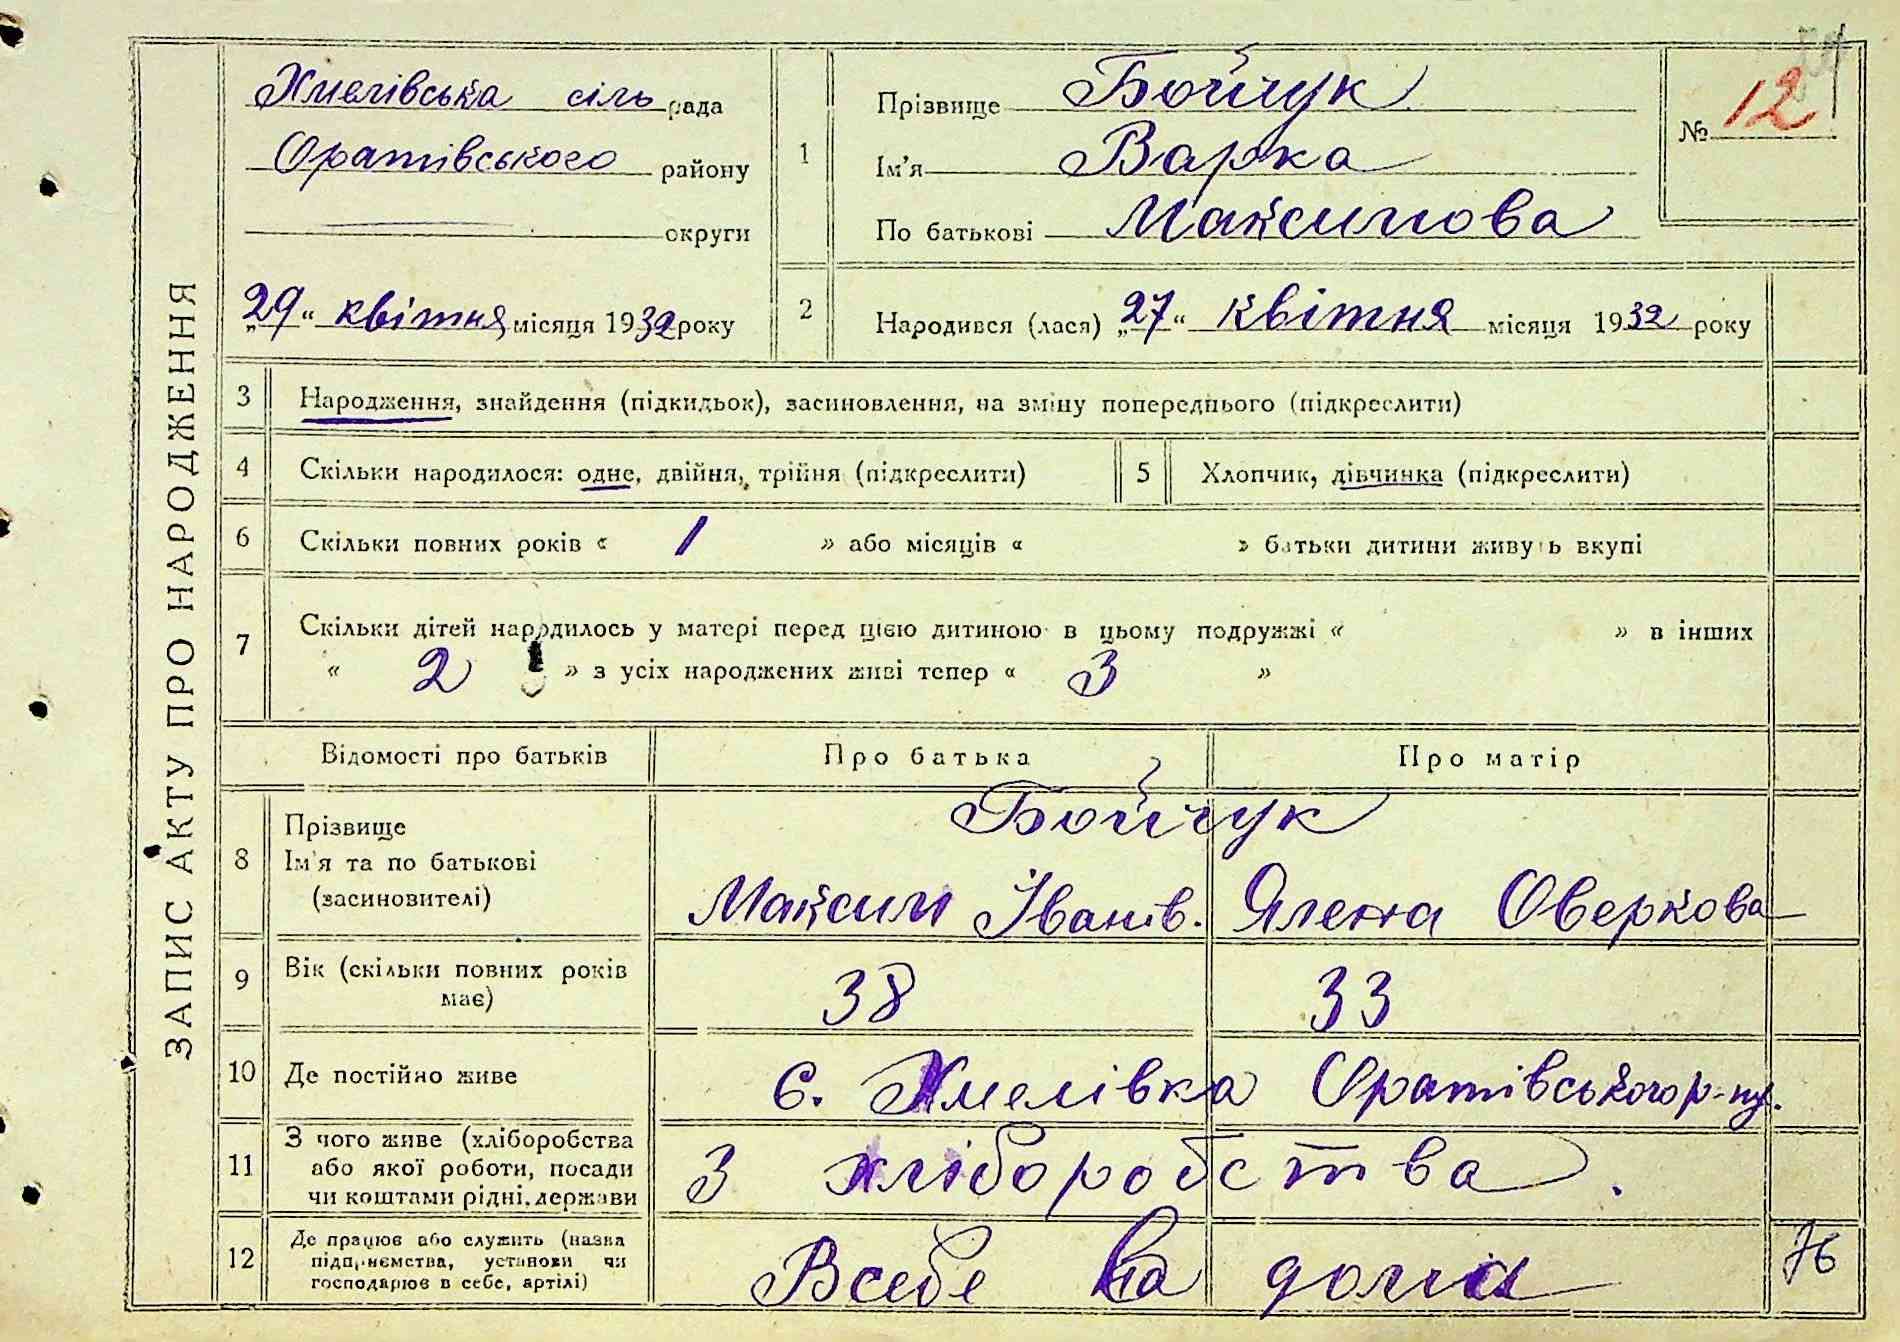 ЗАПИС АКТУ ПРО НАРОДЖЕННЯ
Хмелівська сіль рада
Оратівського району
округи
„29“ квітня місяця 1932 року
1
Прізвище Бойчук
Ім'я Варка
По батькові Максимова
№ 12
2
Народився (лася) „27“ квітня місяця 1932 року
3 Народження, знайдення (підкидьок), засиновлення, на зміну попереднього (підкреслити)
4 Скільки народилося: одне, двійня, трійня (підкреслити)
5 Хлопчик, дівчинка (підкреслити)
6 Скільки повних років « 1 » або місяців « » батьки дитини живуть вкупі
7 Скільки дітей народилось у матері перед цією дитиною в цьому подружжі « » в інших
« 2 » з усіх народжених живі тепер « 3 »
Відомості про батьків Про батька Про матір
8 Прізвище
Ім'я та по батькові
(засиновителі)
Бойчук
Максим Іванів. Ялена Оверкова
9 Вік (скільки повних років
має)
38 33
10 Де постійно живе с. Хмелівка Оратівського р-ну.
11 З чого живе (хліборобства
або якої роботи, посади
чи коштами рідні, держави
З хліборобства.
12 Де працює або служить (назва
підприємства, установи чи
господарює в себе, артілі)
В себе на дома
76